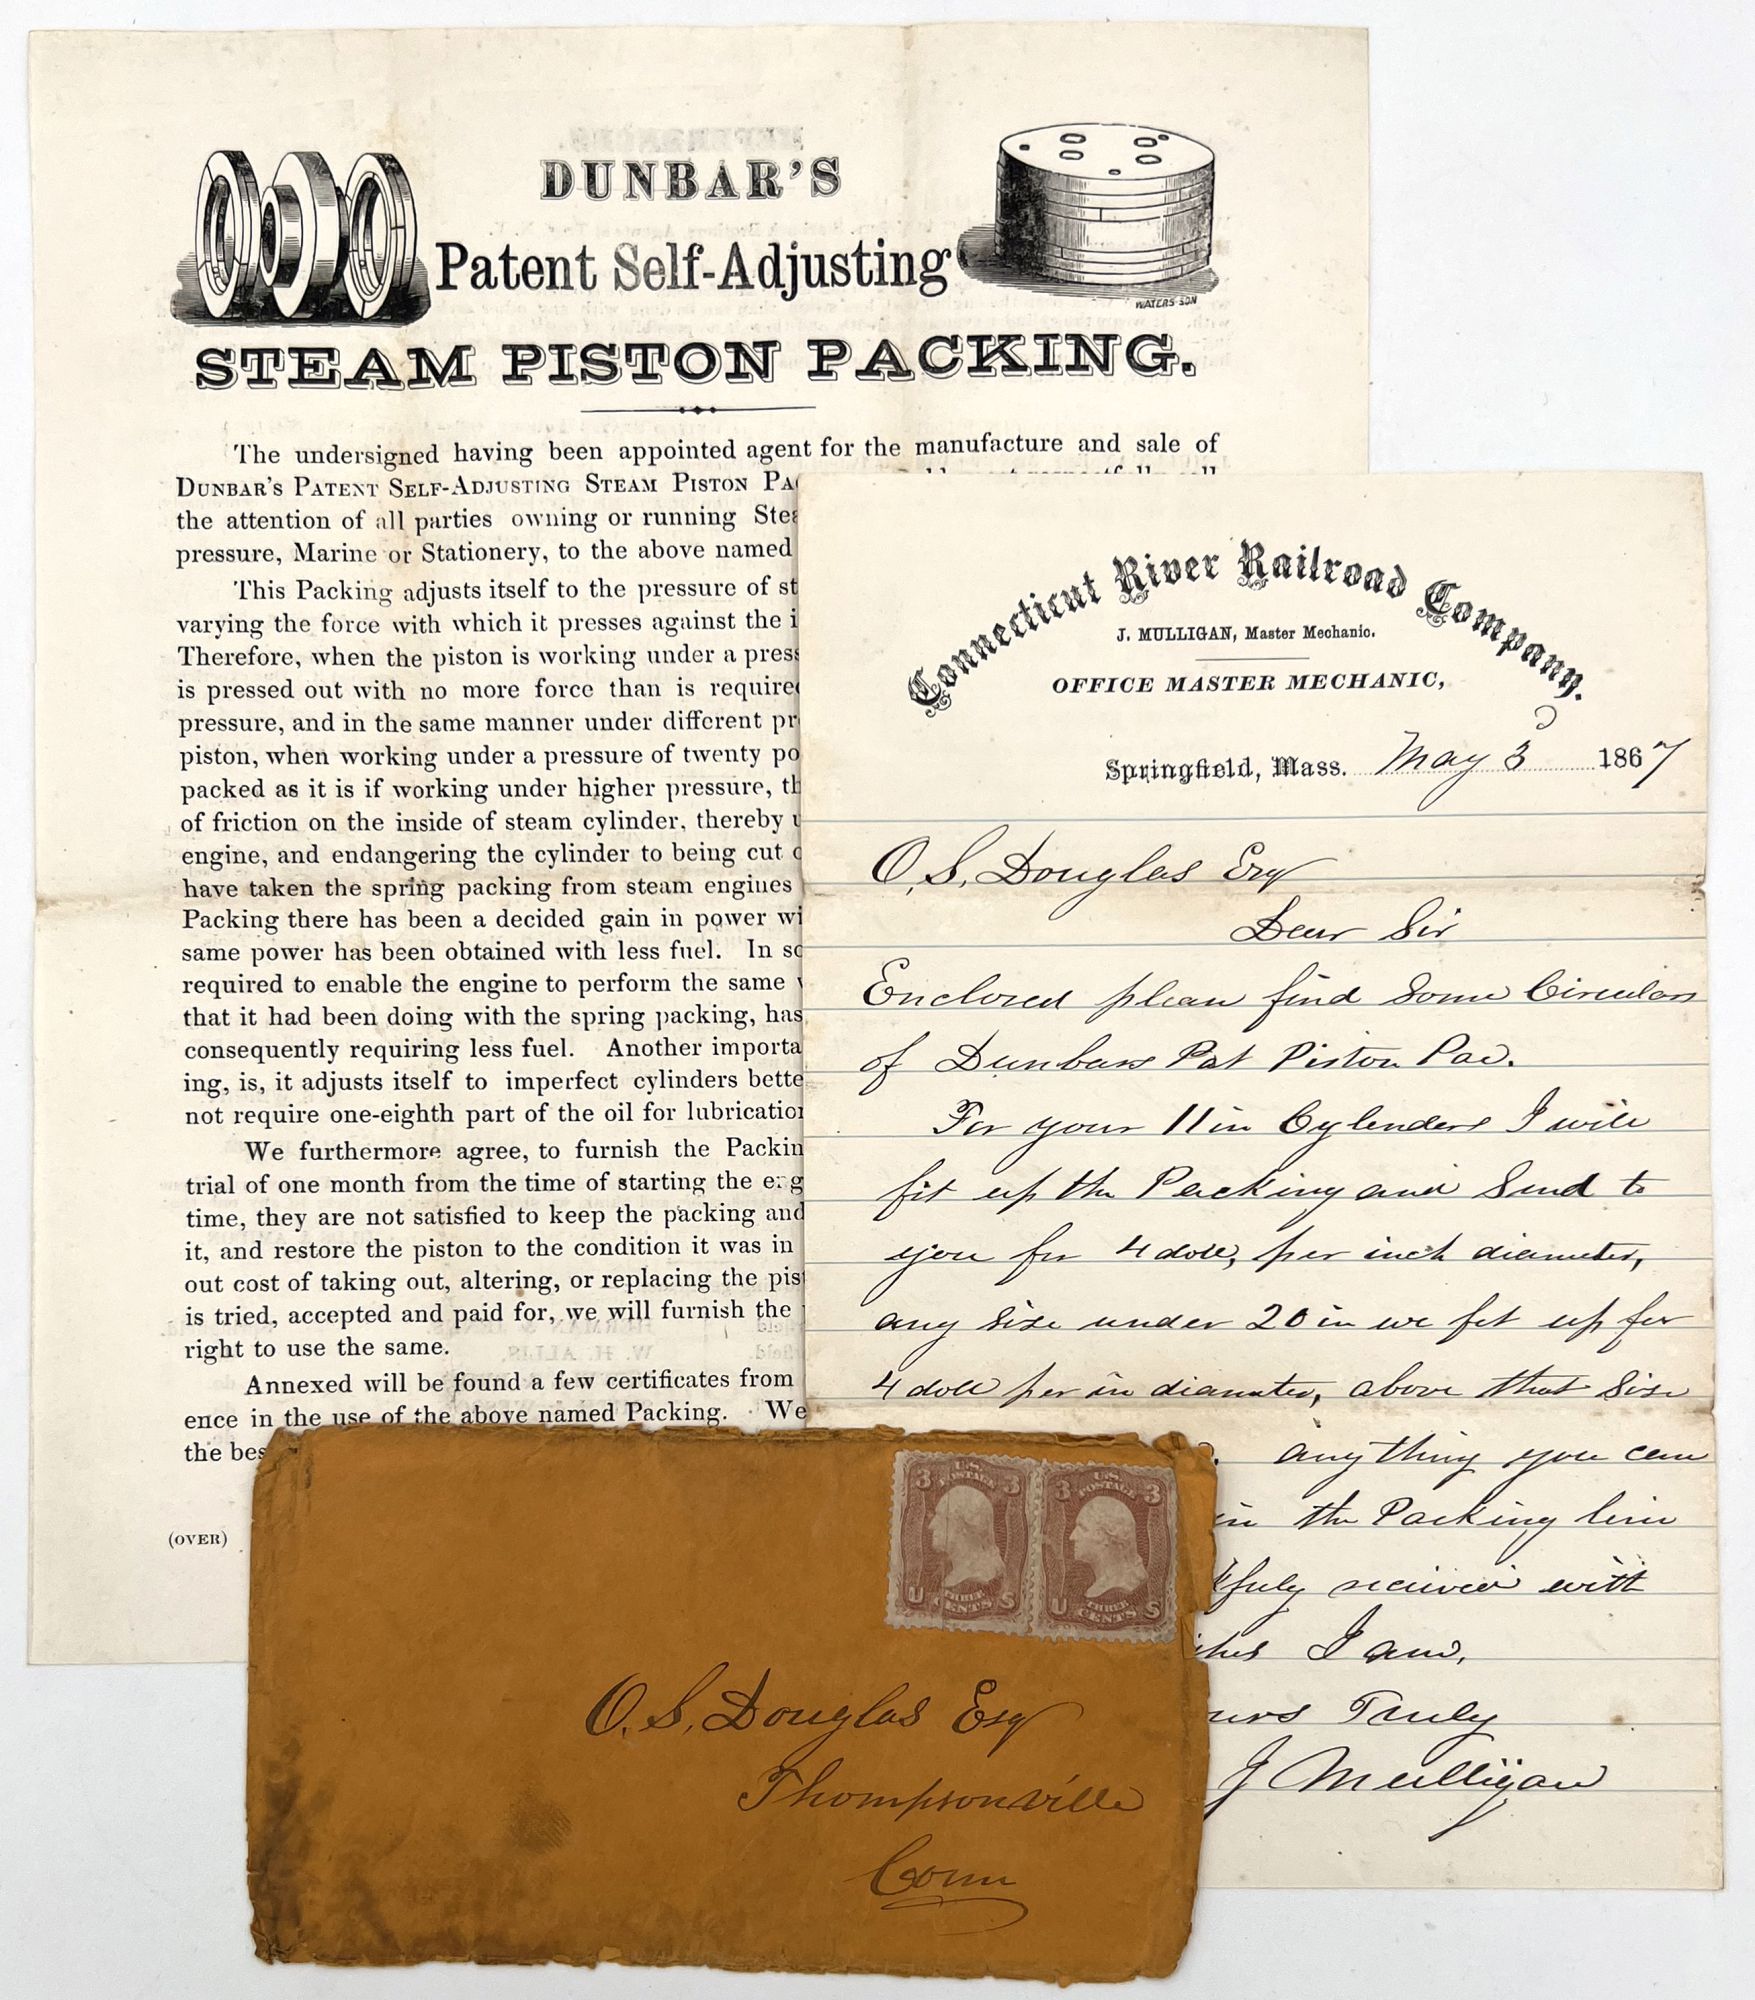 DUNBAR'S
Patent Self-Adjusting
WATERS-SON
STEAM PISTON PACKING.
The undersigned having been appointed agent for the manufacture and sale of
DUNBAR'S PATENT SELF-ADJUSTING STEAM PISTON PA
the attention of all parties owning or running Stea
pressure, Marine or Stationery, to the above named
This Packing adjusts itself to the pressure of st
varying the force with which it presses against the i
Therefore, when the piston is working under a press
is pressed out with no more force than is required
pressure, and in the same manner under different pr
piston, when working under a pressure of twenty po
packed as it is if working under higher pressure, th
of friction on the inside of steam cylinder, thereby u
engine, and endangering the cylinder to being cut o
have taken the spring packing from steam engines
Packing there has been a decided gain in power wi
same power has been obtained with less fuel. In so
required to enable the engine to perform the same
that it had been doing with the spring packing, has
consequently requiring less fuel. Another importa
ing, is, it adjusts itself to imperfect cylinders bette
not require one-eighth part of the oil for lubrication
We furthermore agree, to furnish the Packin
trial of one month from the time of starting the eng
time, they are not satisfied to keep the packing and
it, and restore the piston to the condition it was in
out cost of taking out, altering, or replacing the pis
is tried, accepted and paid for, we will furnish the
right to use the same.
Annexed will be found a few certificates from
ence in the use of the above named Packing. We
the bes
(OVER)
Connecticut River Railroad Company.
J. MULLIGAN, Master Mechanic.
OFFICE MASTER MECHANIC,
Springfield, Mass. May 3 1867
O. S. Douglas Esq
Dear Sir
Enclosed please find some Circulars
of Dunbars Pat Piston Pac.
For your 11 in Cylenders I will
fit up the Packing and Send to
you for 4 doll, per inch diameter,
any size under 20 in we fit up for
4 doll per in diameter, above that size
anything you can
in the Packing line
fuly received with
ishes I am,
urs Truly
J Mulligan
3 U.S. POSTAGE 3
U THREE CENTS S
3 U.S. POSTAGE 3
U THREE CENTS S
O. S. Douglas Esq
Thompsonville
Conn